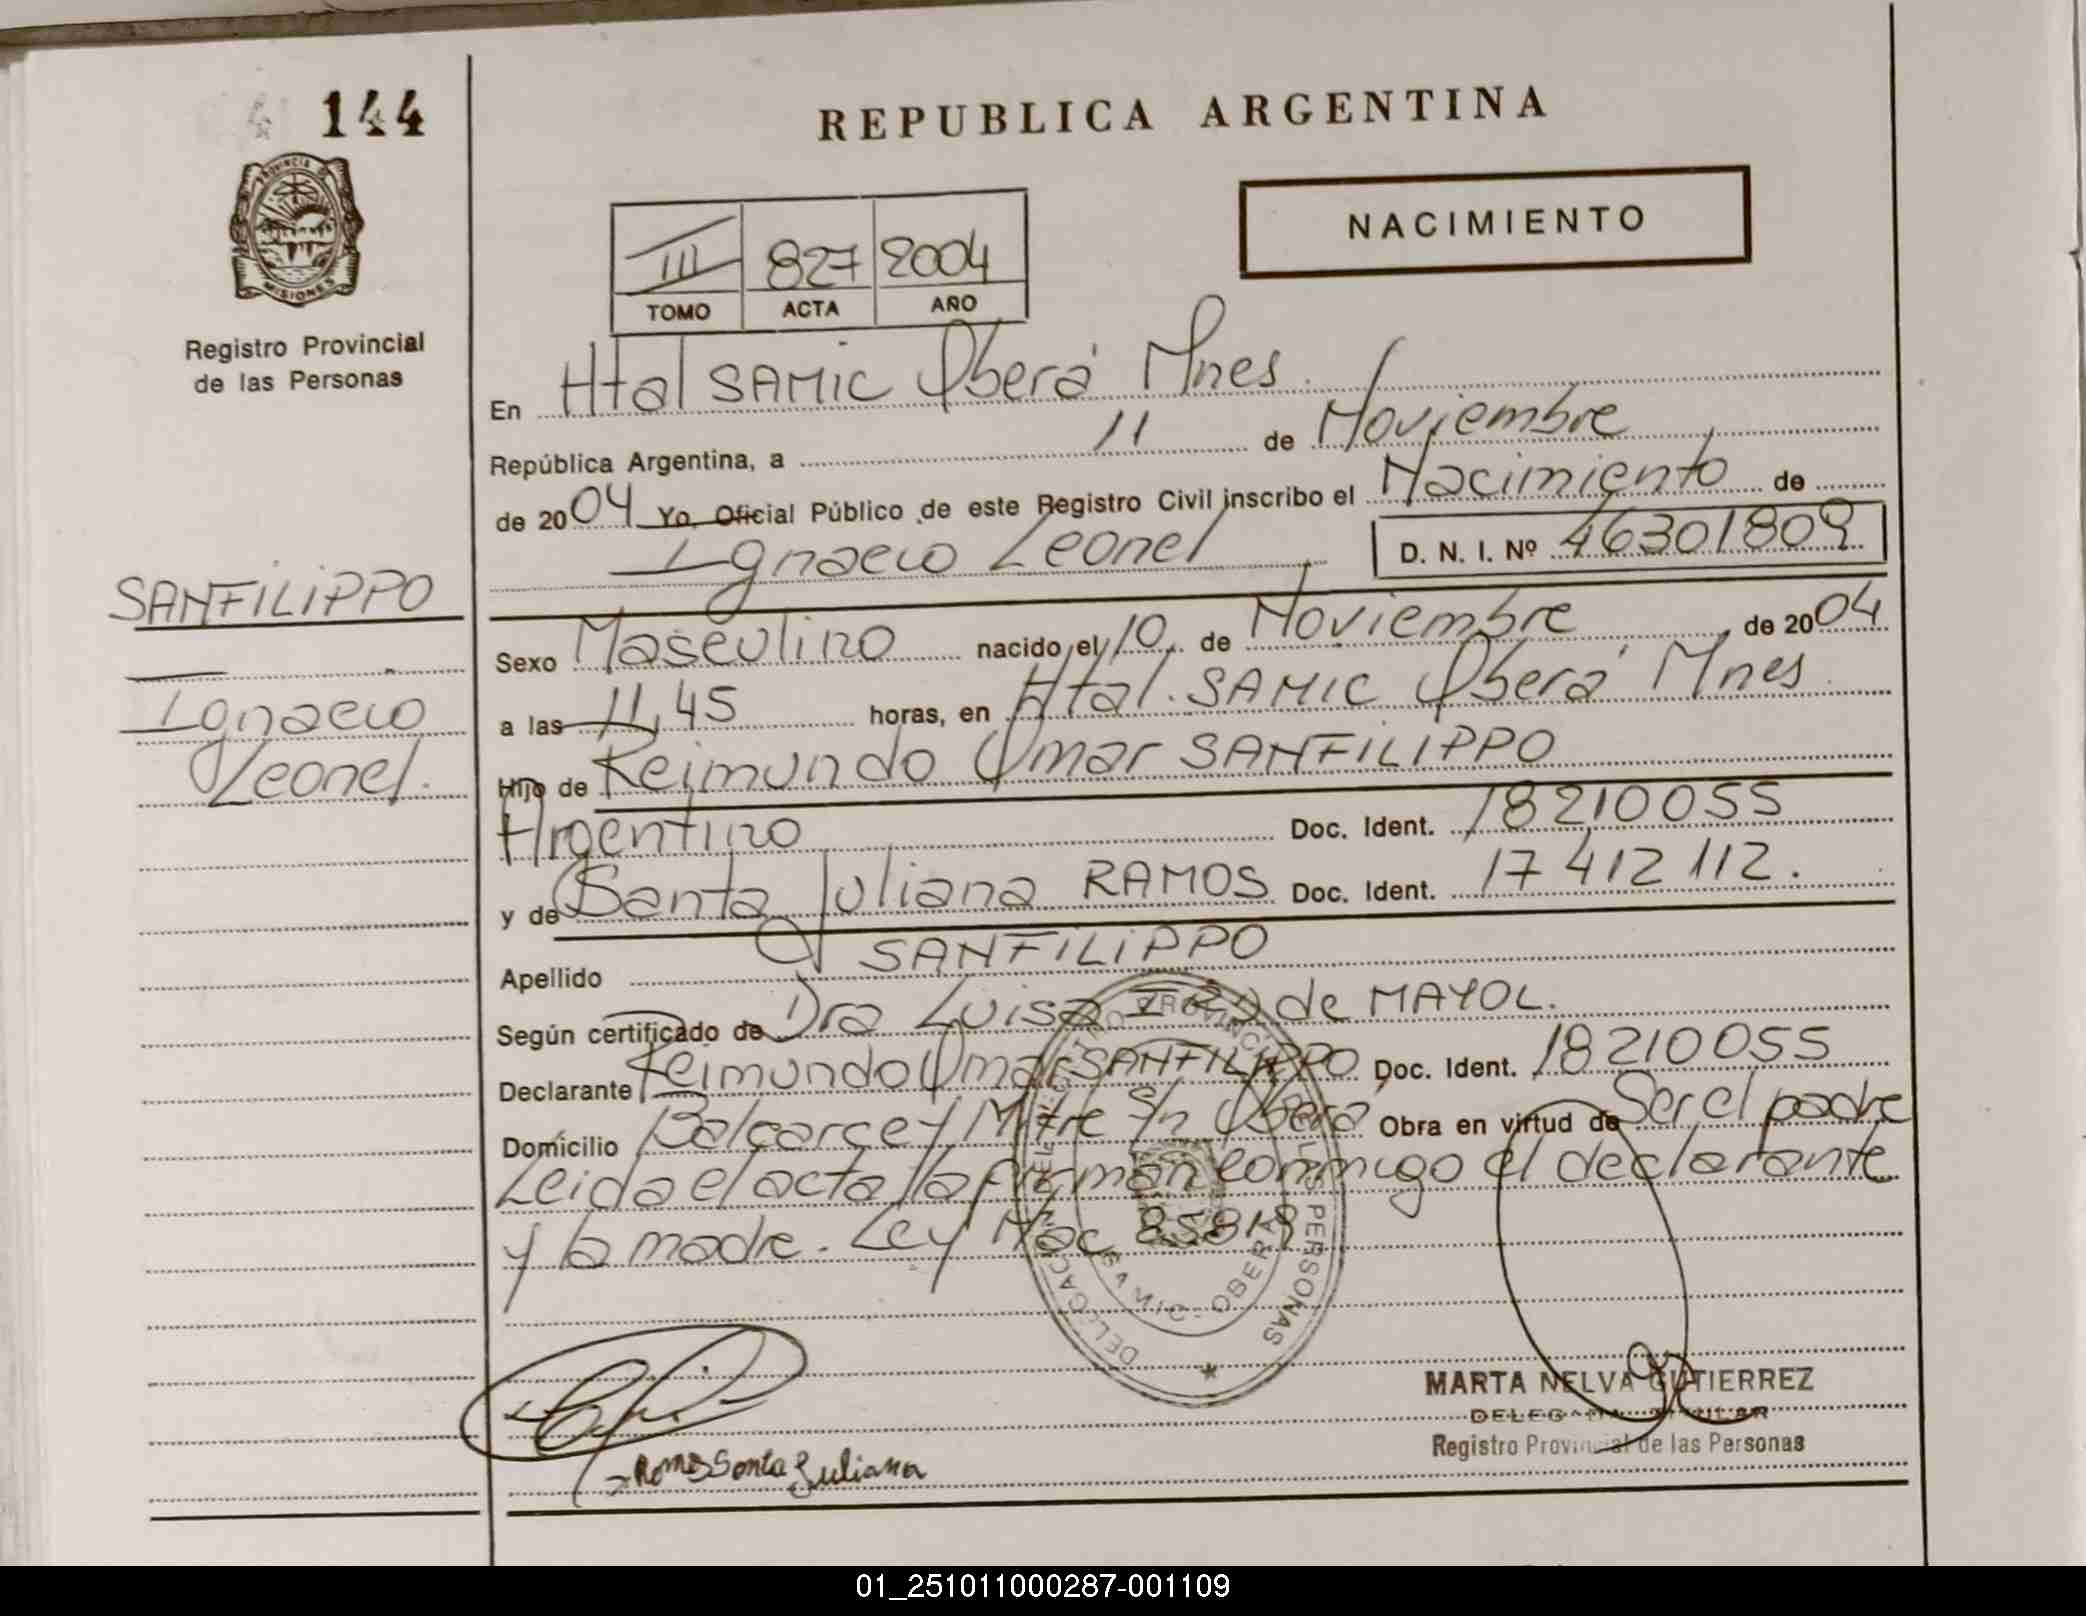 144
REPUBLICA ARGENTINA
NACIMIENTO
PROVINCIA
MISIONES
III 827 2004
TOMO ACTA AÑO
Registro Provincial
de las Personas
En Htal SAMIC Oberá Mnes
República Argentina, a 11 de Noviembre
de 2004 Yo, Oficial Público de este Registro Civil inscribo el Nacimiento de
Ignacio Leonel D. N. I. Nº 46301809
SANFILIPPO
Ignacio
Leonel.
Sexo Masculino nacido el 10 de Noviembre de 2004
a las 11,45 horas, en Htal. SAMIC Oberá Mnes
Hijo de Reimundo Omar SANFILIPPO
Argentino Doc. Ident. 18210055
y de Santa Juliana RAMOS Doc. Ident. 17412112.
Apellido SANFILIPPO
Según certificado de Dra Luisa de MAYOL.
Declarante Reimundo Omar SANFILIPPO Doc. Ident. 18210055
Domicilio Balcarce y Mitre S/n Oberá Obra en virtud de Ser el padre
Leida el acta la firman conmigo el declarante
y la madre. Ley Nac
DELEGACION PERSONAS
SAMIC - OBERA
Ramos Santa Juliana
MARTA NELVA GUTIERREZ
DELEGADA TITULAR
Registro Provincial de las Personas
01_251011000287-001109